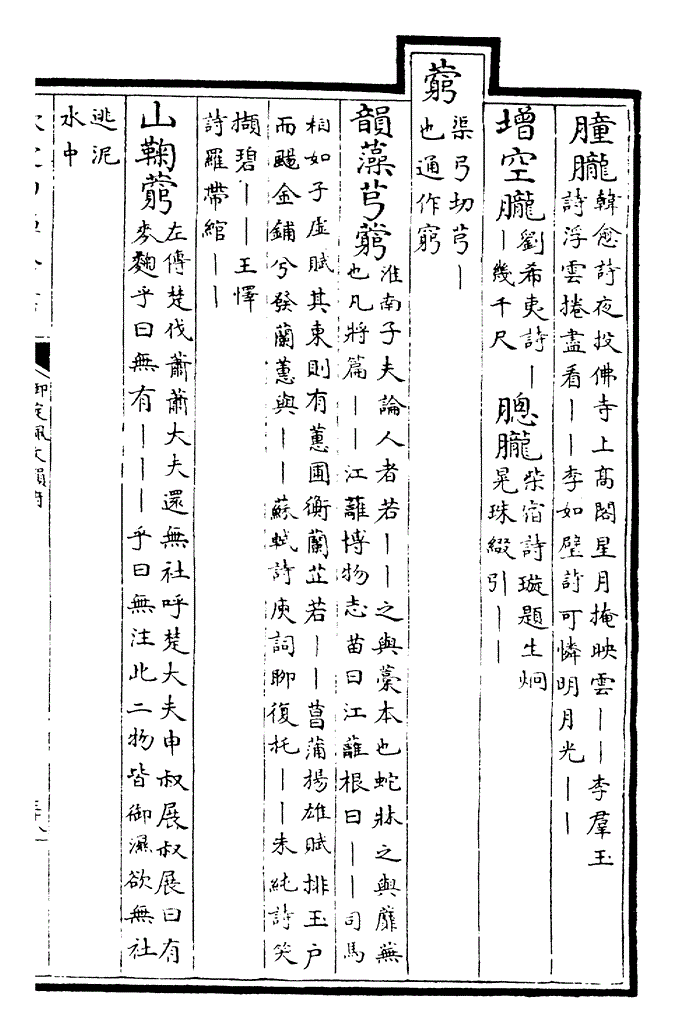 朣朧韓愈詩夜投佛寺上高閣星月掩映雲丨丨李羣玉
詩浮雲捲盡看丨丨李如璧詩可憐明月光丨丨
增空朧劉希夷詩丨
丨幾千尺
朧朧柴宿詩璇題生炯
晃珠綴引丨丨
藭渠弓切芎丨
也通作窮
韻藻芎藭淮南子夫論人者若丨丨之與藁本也蛇牀之與蘼蕪
也凡將篇丨丨江蘺博物志苗曰江蘺根曰丨丨司馬
相如子虛賦其東則有蕙圃衡蘭芷若丨丨菖蒲揚雄賦排玉户
而颺金鋪兮發蘭蕙與丨丨蘇軾詩庾詞聊復托丨丨朱純詩笑
擷碧丨丨王惲
詩羅帶綰丨丨
山鞠藭左傳楚伐蕭蕭大夫還無社呼楚大夫申叔展叔展曰有
麥麴乎曰無有丨丨丨乎曰無注此二物皆御濕欲無社
逃泥
水中
御定佩文韻府